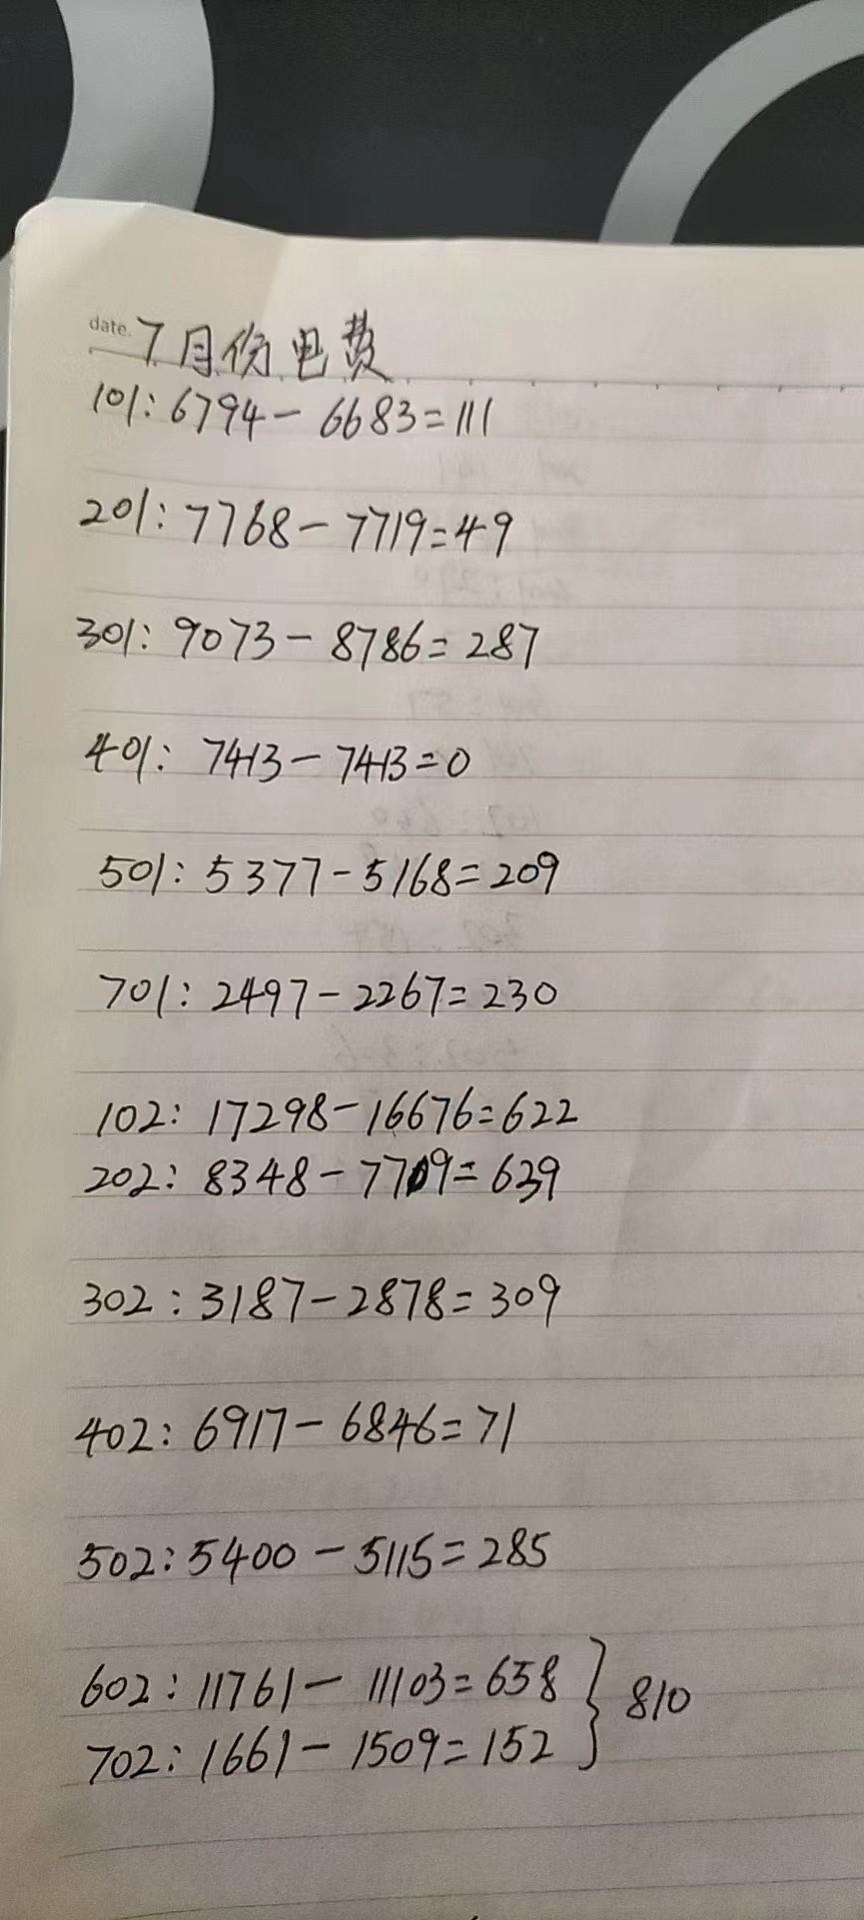 date. 7月份电费
101: 6794-6683=111
201: 7768-7719=49
301: 9073-8786=287
401: 7413-7413=0
501: 5377-5168=209
701: 2497-2267=230
102: 17298-16676=622
202: 8348-7709=639
302: 3187-2878=309
402: 6917-6846=71
502: 5400-5115=285
602: 11761-11103=658 } 810
702: 1661-1509=152